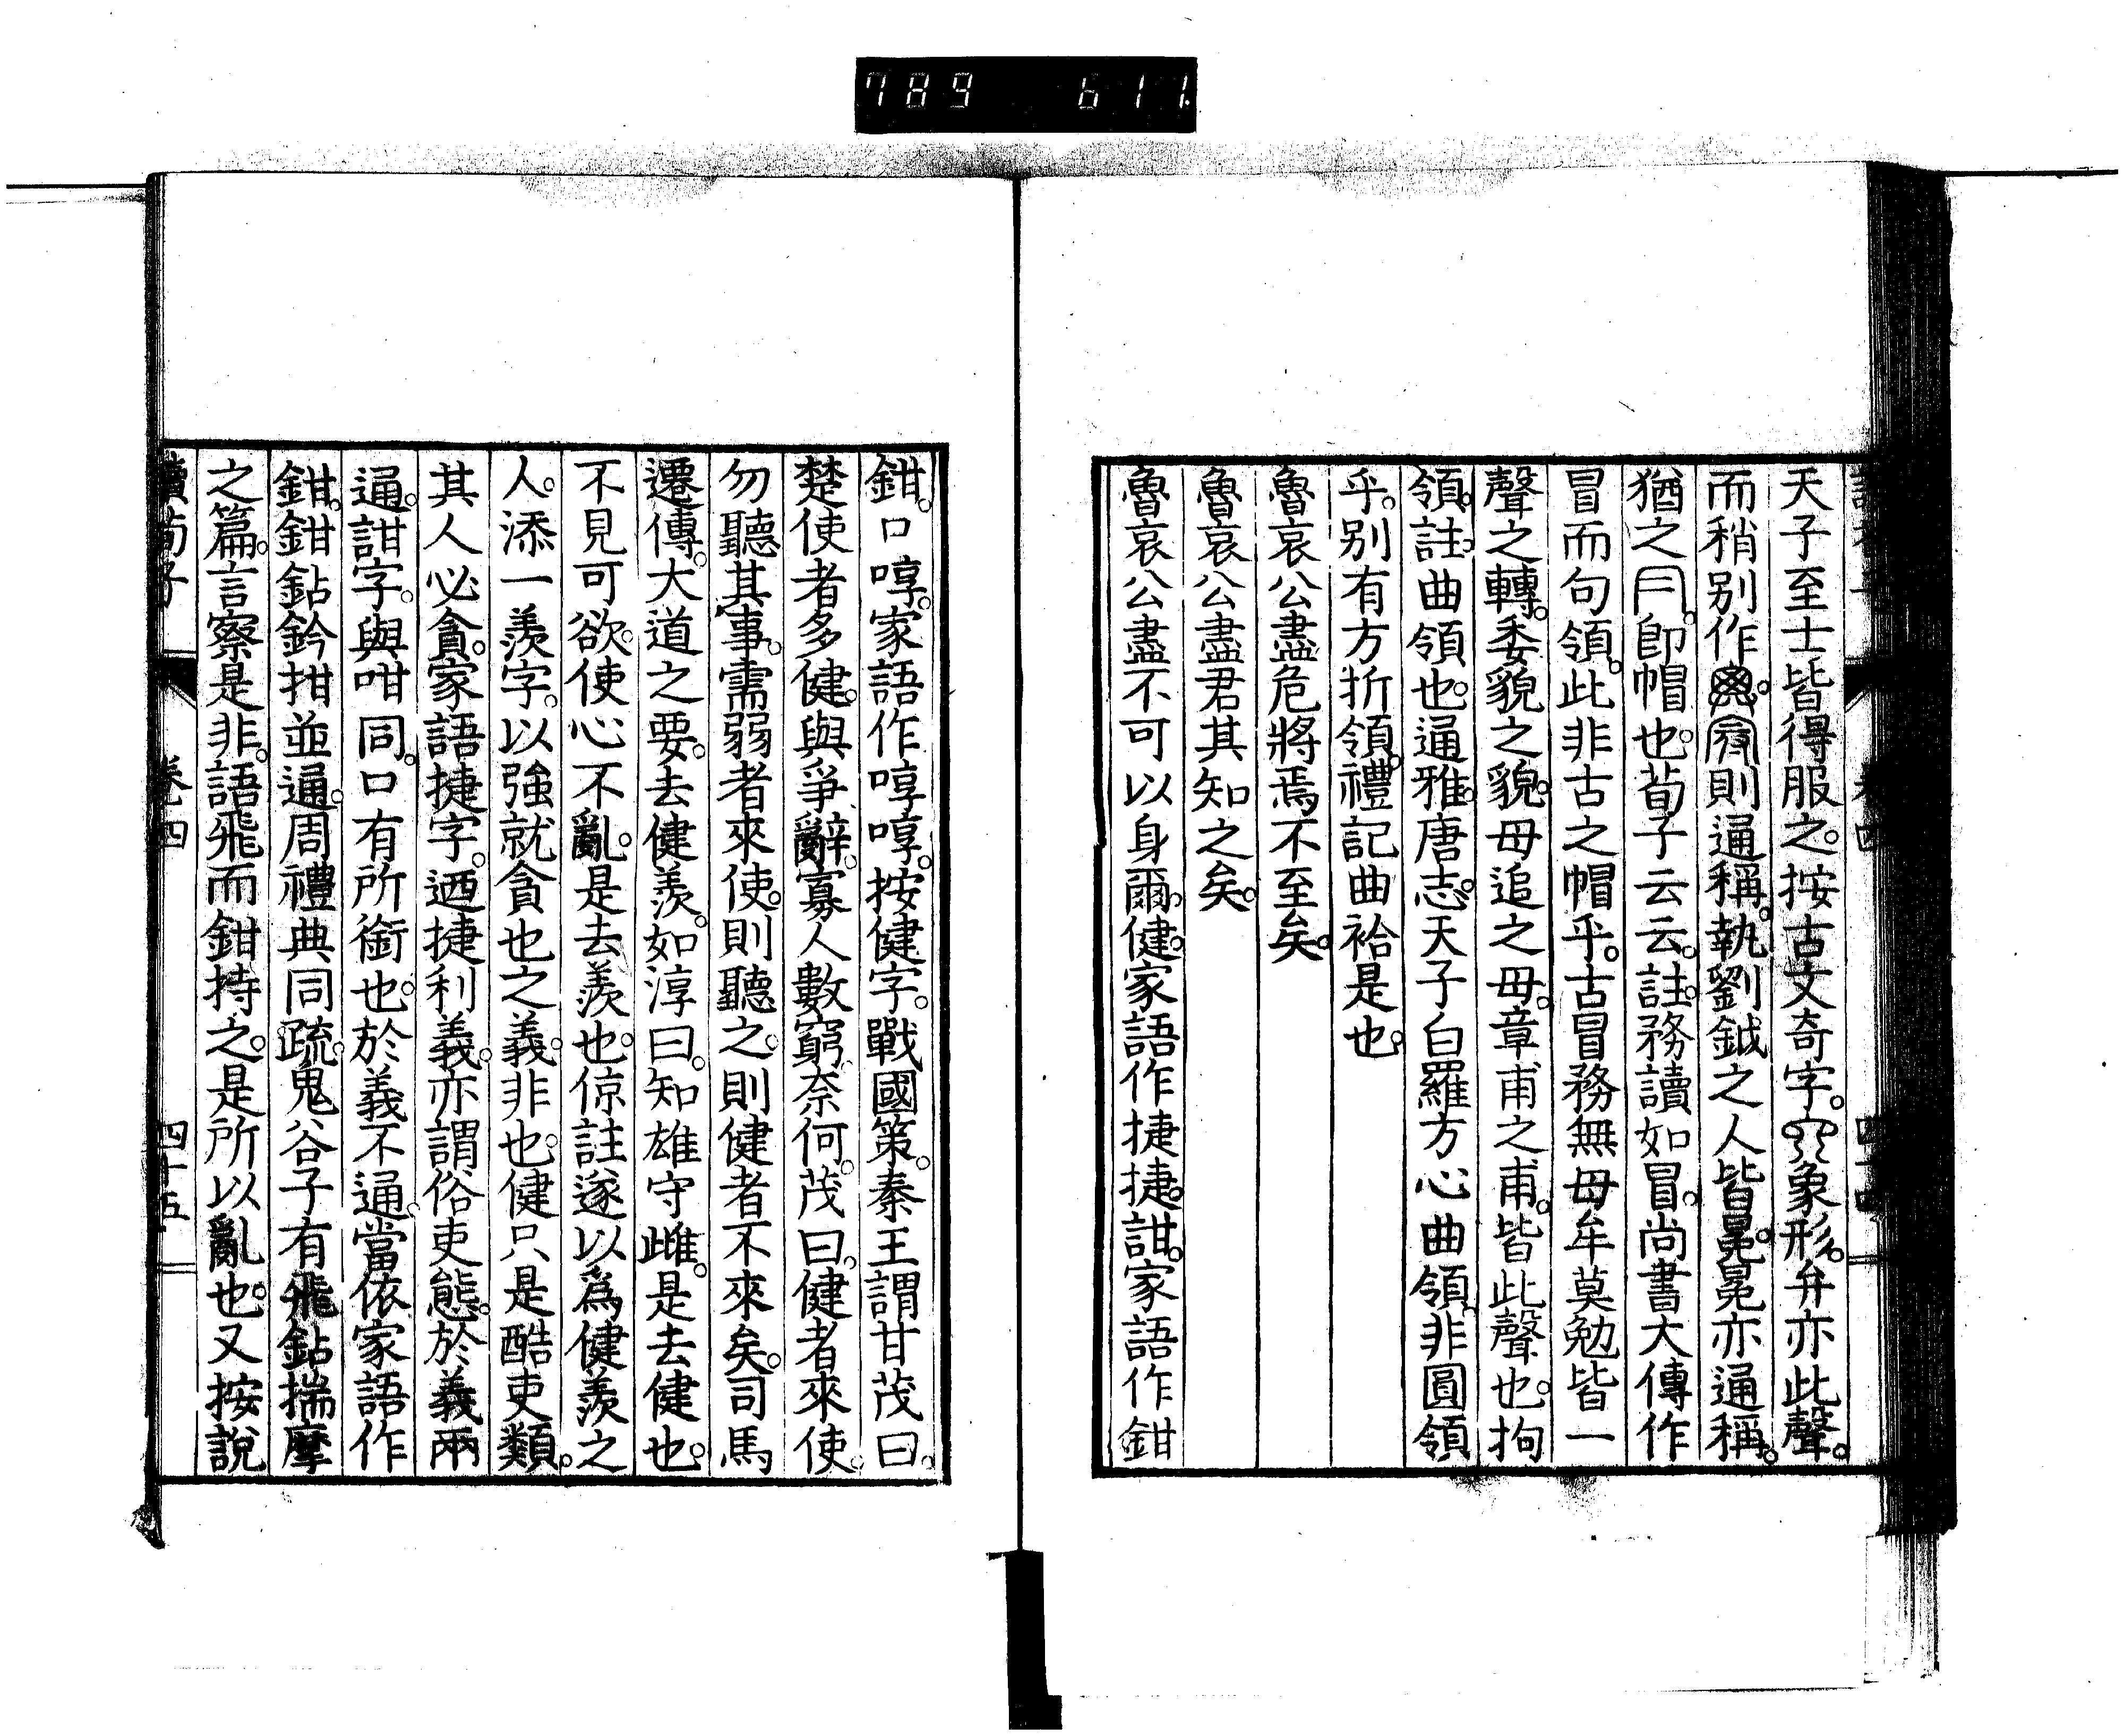 789 611
天子至士皆得服之。按古文奇字。象形。弁亦此聲。
而稍别作。則通稱。執劉鉞之人皆冕。冕亦通稱。
猶之冃。卽帽也。荀子云云。註。務讀如冒。尚書大傳作
冒而句領。此非古之帽乎。古冒務無毋牟莫勉皆一
聲之轉。委貌之貌。毋追之毋。章甫之甫。皆此聲也。拘
領。註。曲領也。通雅。唐志。天子白羅方心曲領。非圓領
乎。别有方折領。禮記曲袷是也。
魯哀公盡危將焉不至矣。
魯哀公盡君其知之矣。
魯哀公盡不可以身爾。健。家語作捷捷。詌。家語作鉗
鉗。口啍。家語作啍啍。按健字。戰國策。秦王謂甘茂曰。
楚使者多健。與爭辭。寡人數窮。奈何。茂曰。健者來使。
勿聽其事。需弱者來使。則聽之。則健者不來矣。司馬
遷傳。大道之要。去健羨。如淳曰。知雄守雌。是去健也。
不見可欲。使心不亂。是去羨也。倞註遂以爲健羨之
人。添一羨字。以強就貪也之義。非也。健只是酷吏類。
其人必貪。家語捷字。迺捷利義。亦謂俗吏態。於義兩
通。詌字。與咁同。口有所銜也。於義不通。當依家語作
鉗。鉗鉆鈐拑並通。周禮典同疏。鬼谷子有飛鉆揣摩
之篇。言察是非。語飛而鉗持之。是所以亂也。又按說
讀荀子 卷四 四十五